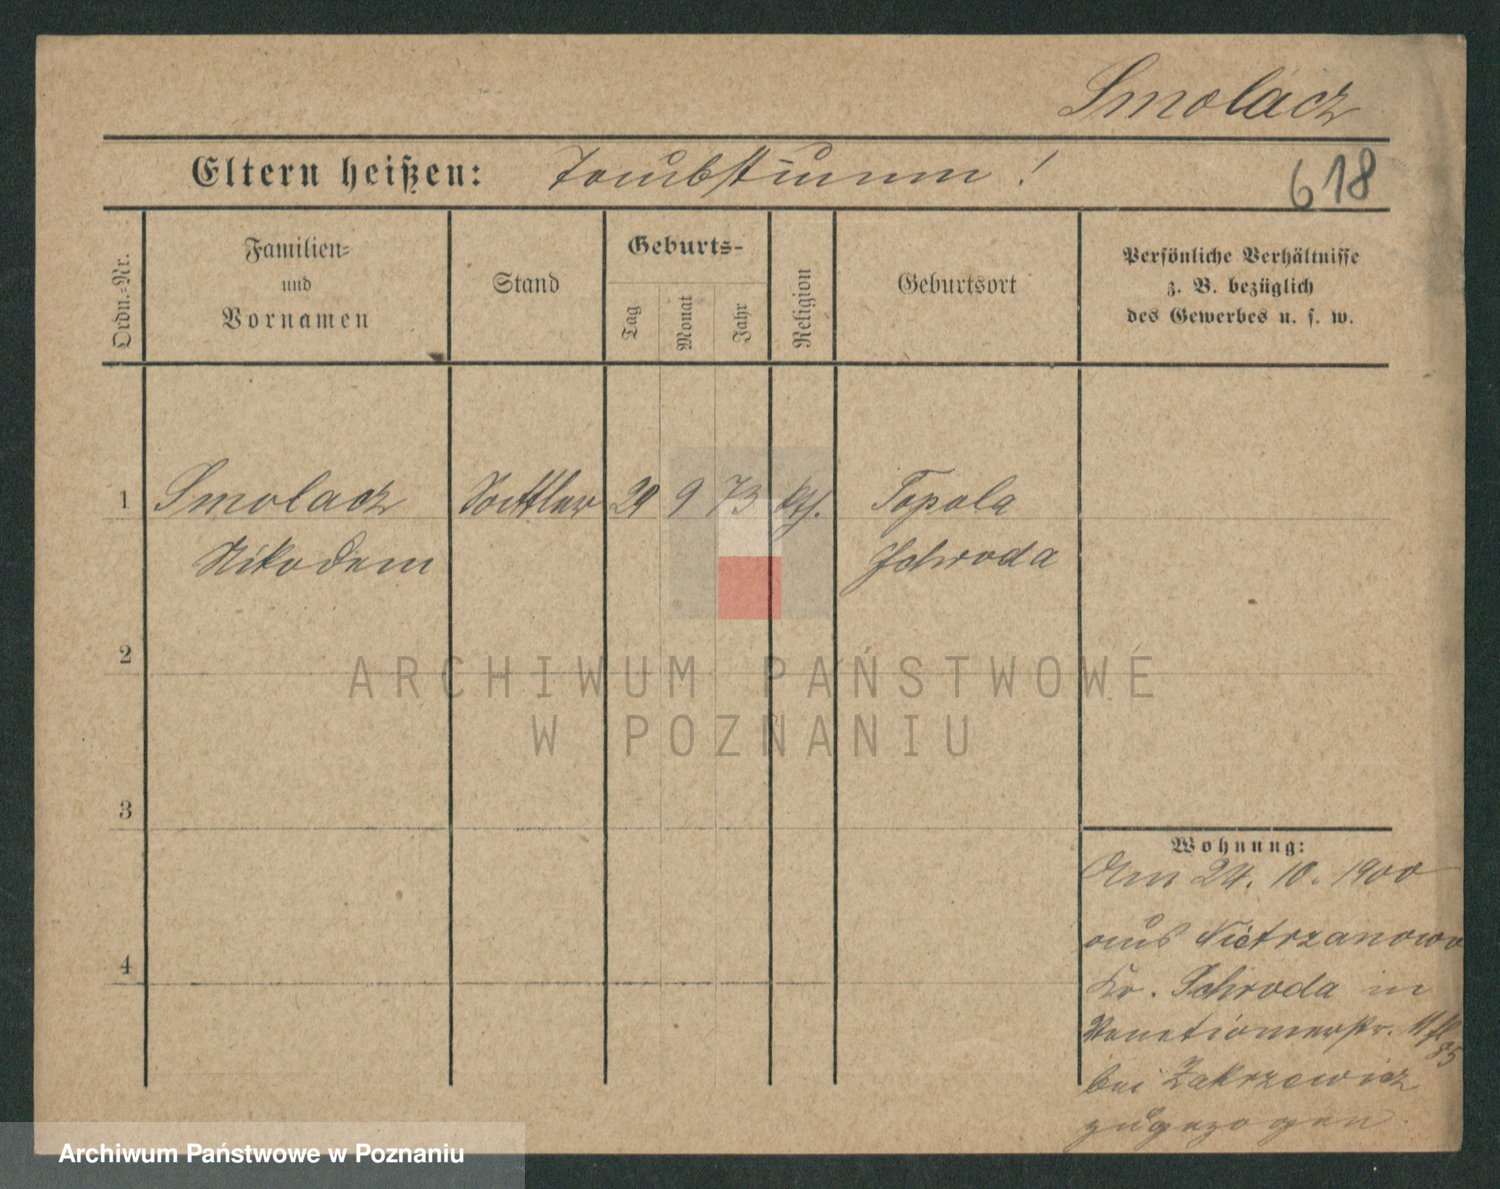 Smolacz
Eltern heißen: Taubstumm!
618
Ordn.-Nr.
Familien-
und
Vornamen
Stand
Geburts-
Tag
Monat
Jahr
Religion
Geburtsort
Persönliche Verhältnisse
z. B. bezüglich
des Gewerbes u. s. w.
1 Smolacz Sattler 29 9 73 kth. Topola
Nikodem Schroda
2
ARCHIWUM PAŃSTWOWE
W POZNANIU
3
Wohnung:
Am 24. 10. 1900
4
aus Nietrzanowo
Kr. Schroda in
Venetianerstr.
bei Zakrzewicz
zugezogen
Archiwum Państwowe w Poznaniu